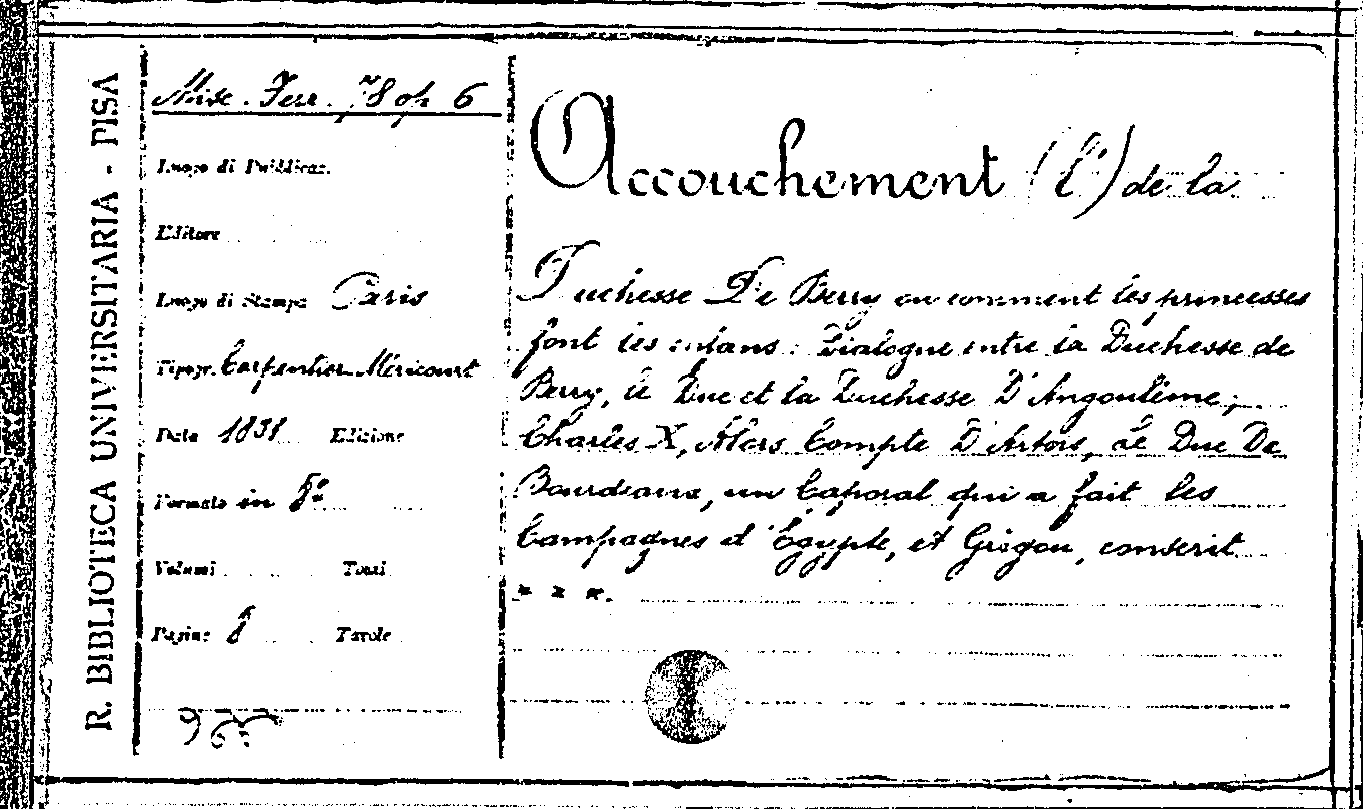 R. BIBLIOTECA UNIVERSITARIA - PISA
Misc. Ferr. 78 op 6
Luogo di Pubblicaz.
Editore
Luogo di Stampa Paris
Tipogr. Carpentier-Méricourt
Data 1831 Edizione
Formato in 8º
Volumi Tomi
Pagine 8 Tavole
Accouchement (L') de la
Duchesse De Berry ou comment les princesses
font les enfans : Dialogue entre la Duchesse de
Berry, le Duc et la Duchesse D'Angoulême,
Charles X, Alors Compte D'Artois, Le Duc De
Bourdeaux, un Caporal qui a fait les
Campagnes d'Egypte, et Grigou, conscrit
* * *.